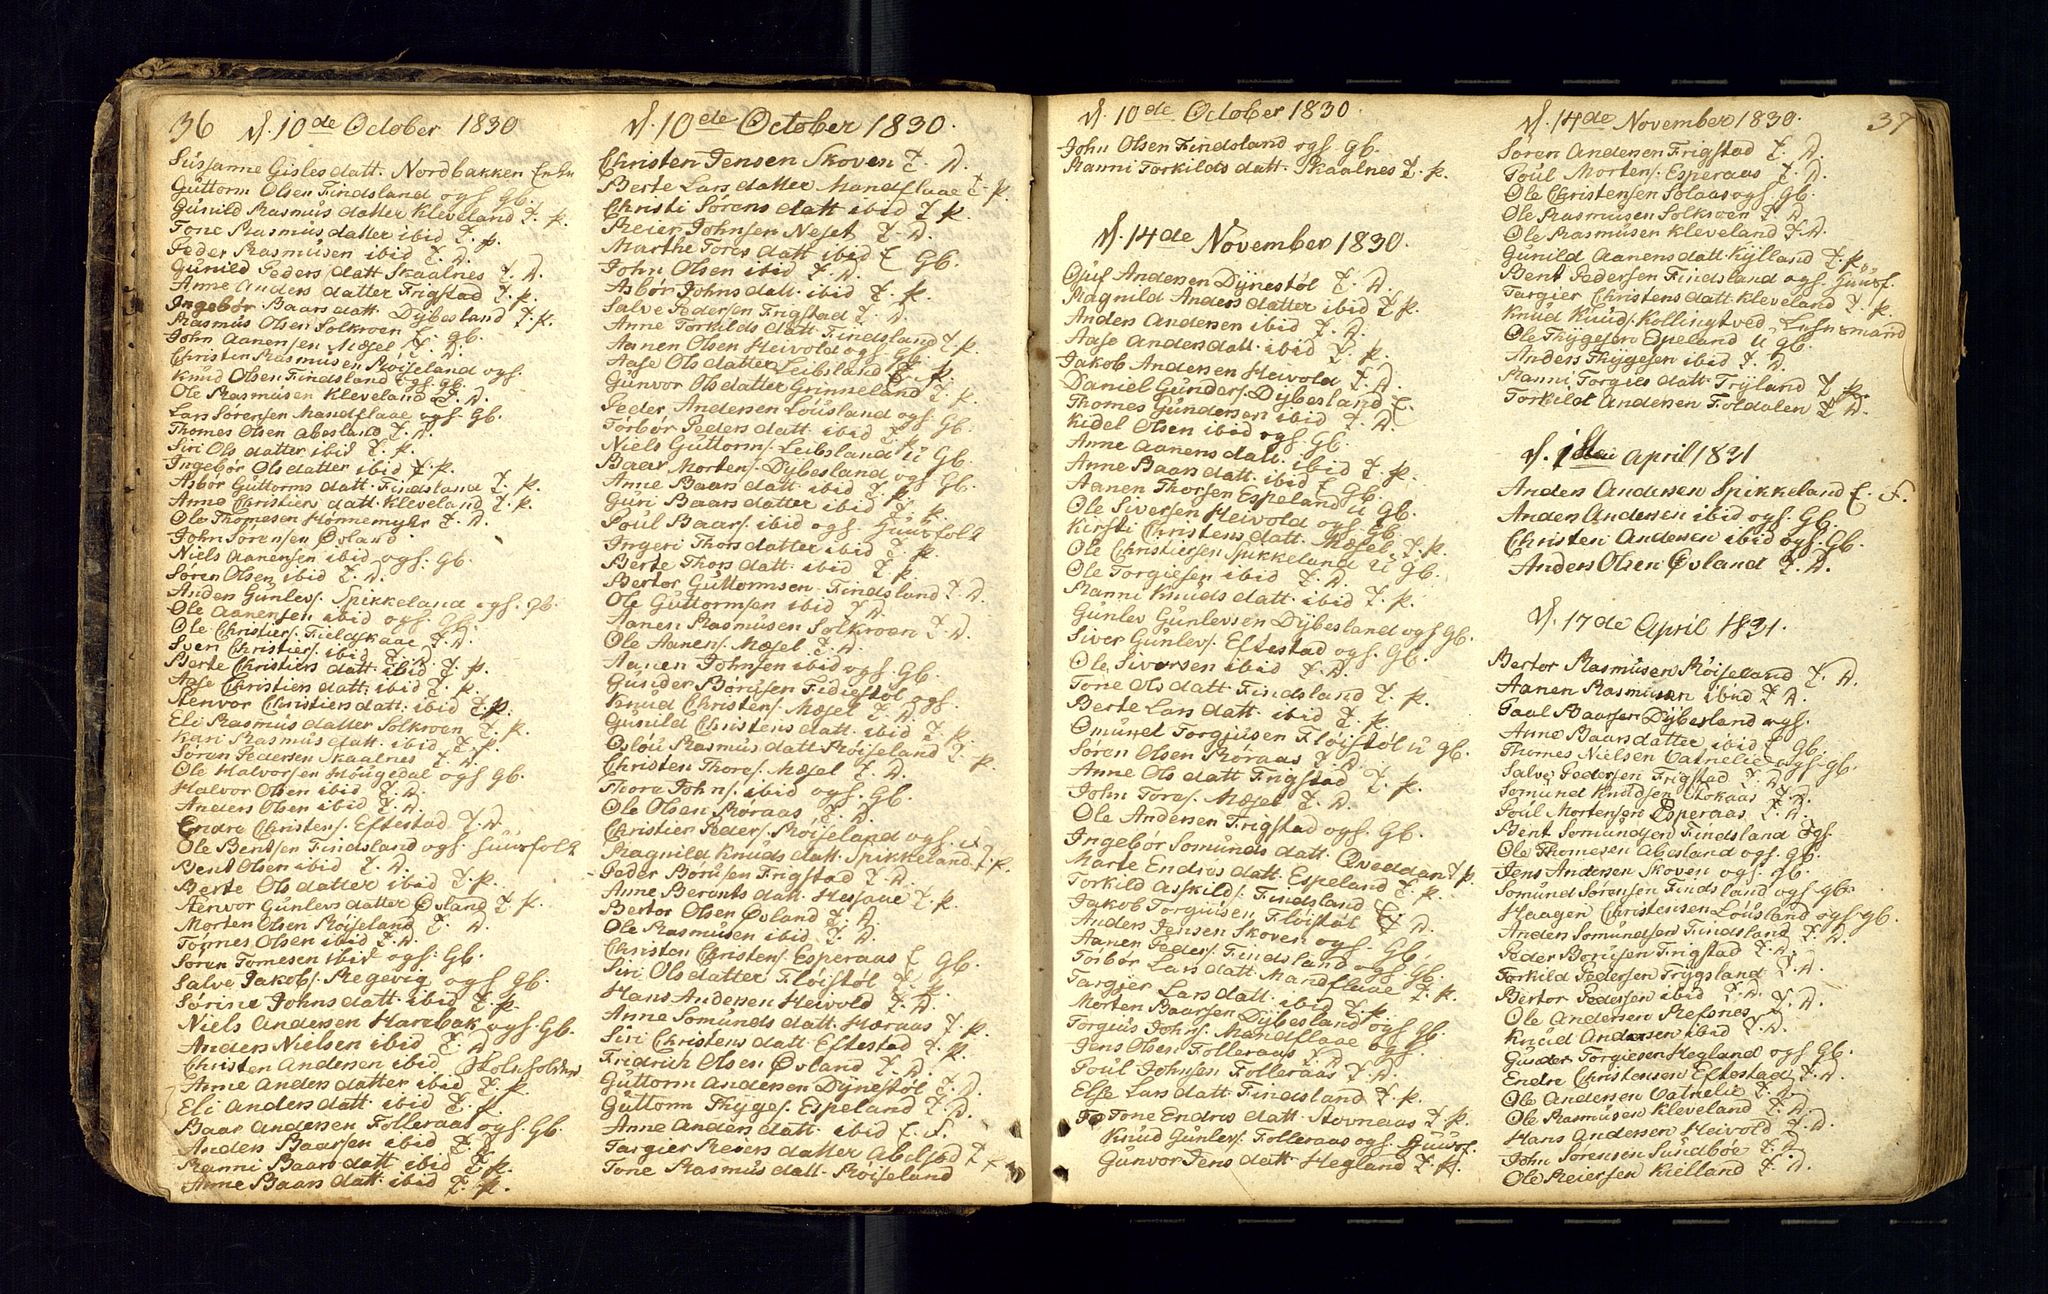 36 d. 10de October 1830
Süssanne Gislesdatt. Nordbakken Enke
Güttorm Olsen Findsland ogs. Gb.
Günild Rasmüsdatter Kleveland T. P.
Tone Rasmusdatter ibid T. P.
Peder Rasmüsen ibid T. D.
Günild Peders datt Skaalnes T. D.
Anne Anders datter Frigstad T. P.
Ingebør Baarsdatt. Dÿbesland T. P.
Rasmüs Olsen Solkroen E. Gb.
John Aanensen Mæsel T. D.
Christen Rasmüsen Røiseland ogs.
Knüd Olsen Findsland ogs. Gb.
Ole Rasmüsen Kleveland T. D.
Lars Sørensen Mandflaae ogs. Gb.
Thomes Olsen Abesland T. D.
Siri Ols datter ibid T. P.
Ingebør Ols datter ibid T. P.
Asbør Güttorms datt. Findsland T. P.
Anne Christiens datt. Kleveland T. P.
Ole Thomesen Hønnemyhr T. D.
John Sørensen Øvland
Niels Aanensen ibid ogs. Gb.
Søren Olsen ibid T. D.
Anders Günlevs. Spikkeland ogs. Gb.
Ole Aanensen ibid ogs. Gb.
Ole Christiers. Fieldskaae T. D.
Sven Christiers. ibid T. D.
Berte Christiers datt ibid T. P.
Aase Christiers datt. ibid T. P.
Stenvor Christiersdatt. ibid T. P.
Eli Rasmüs datter Solkroen T. P.
Kari Rasmüs datt. ibid T. P.
Søren Pedersen Skaalnes T. D.
Ole Halvorsen Houggedal ogs Gb.
Halvor Olsen ibid T. D.
Anders Olsen ibid T. D.
Endre Christens. Eftestad T. D.
Ole Bentsen Findsland ogs. Hüüsfolk
Bent Olsen ibid T. D.
Berte Ols datter ibid T. P.
Stenvor Günlevs datter Øvland T. P.
Morten Olsen Røiseland T. D.
Tønnes Olsen ibid T. D.
Søren Tomesen ibid ogs. Gb.
Salve Jakobs. Regevig ogs Gb.
Sørine Johnsdatt. ibid T. P.
Niels Andersen Harebak ogs Gb.
Anders Nielsen ibid T. D.
Christen Andersen ibid Skoleholder
Anne Anders datter ibid T. P.
Eli Anders datt. ibid T. P.
Baar Andersen Folleraas ogs. Gb.
Anders Baarsen ibid T. D.
Ranni Baars datt. ibid T. P.
Anne Baars datt. ibid T. P.
d. 10de October 1830.
Christen Jensen Skoven T. D.
Berte Lars datter Mandflaae T. P.
Christi Sørens datt ibid T. P.
Reier Johnsen Neset T. D.
Marthe Tores datt ibid E Gb.
John Olsen ibid T. D.
Asbør Johns datt. ibid T. P.
Salve Pedersen Frigstad T. D.
Anne Torkilds datt. Findsland T. P.
Aanen Olsen Heivold ogs. Gb.
Aase Ols datter Leibsland T. P.
Günvor Ols datter Grinneland T. P.
Peder Andersen Loüsland ogs. Gb.
Torbør Peders datt. ibid T. P.
Niels Güttorms. Leibsland U Gb.
Baar Mortens. Dÿbesland ogs Gb.
Anne Baars datt. ibid T. P.
Güri Baars datter ibid T. P.
Poül Baars. ibid ogs. Hüüsfolk
Ingeri Thorsdatter ibid T. P.
Berte Thors datt. ibid T. P.
Bertor Güttormsen Findsland T. D.
Ole Güttormsen ibid T. D.
Aanen Rasmüsen Solkroen T. D.
Ole Aanens. Mæsel T. D.
Aanen Johnsen ibid ogs. Gb.
Günder Børüsen Fidiestøl ogs.
Knüd Christens. Mæsel T. D.
Günild Christens datt. ibid T. P.
Osloü Rasmüs datt. Røiseland T. P.
Christen Thores. Mæsel T. D.
Thore Johns. ibid ogs. Gb.
Ole Olsen Røraas T. D.
Christier Peders. Røiseland ogs.
Ragnild Knüds datt. Spikkeland T. P.
Peder Børüsen Frigstad T. D.
Anne Berentsdatt. Hessaae T. P.
Bertor Olsen Øvland T. D.
Ole Rasmüsen ibid T. D.
Christen Christens. Esperaas E Gb.
Siri Ols datter Fløistøl T. P.
Hans Andersen Heivold T. D.
Anne Somünds datt. Hæraas T. P.
Siri Christens datt. Eftestad T. P.
Fridrich Olsen Øvland T. D.
Güttorm Andersen Dÿnestøl T. D.
Güttorm Thÿges. Espeland T. D.
Anne Anders datt. ibid E. F.
Targier Reiers datter Abelstad T
Tone Rasmüs datt. Røiseland
d. 10de October 1830.
John Olsen Findsland ogs. Gb.
Ranni Torkilds datt. Skaalnes T. P.
d. 14de November 1830.
Ojüf Andersen Dÿnestøl T. D.
Ragnild Anders datter ibid T. P.
Anders Andersen ibid T. D.
Aase Andersdatt. ibid T. P.
Jakob Andersen Heivold T. D.
Daniel Günders. Dÿbesland E.
Thomes Gündersen ibid T. D.
Kidel Olsen ibid ogs. Gb.
Anne Aanens datt. ibid T. P.
Anne Baars datt. ibid E Gb.
Aanen Thorsen Espeland U Gb.
Ole Siversen Heivold ogs. Gb.
Kirsti Christens datt. Mæsel T. P.
Ole Christiersen Spikkeland U Gb.
Ole Torgiesen ibid T. D.
Ranne Knüds datt. ibid T. P.
Günlev Günlevsen Dÿbesland ogs Gb.
Siver Günlevs. Eftestad ogs. Gb.
Ole Siversen ibid T. D.
Tone Ols datt. Findsland T. P.
Berte Lars datt. ibid T. P.
Omünd Torgiüsen Fløistøl U Gb.
Søren Olsen Røraas T. D.
Anne Ols datt Frigstad T. P.
John Tores. Mæsel T. D.
Ole Andersen Frigstad ogs. Gb.
Ingebør Somünds datt. Qveddan T. P.
Marte Endres datt. Espeland T. P.
Torkild Asskilds. Findsland E.
Jakob Torgiüsen Fløistøl T. D.
Anders Jensen Skoven ogs. Gb.
Aanen Peders. Findsland ogs. Gb.
Toibør Lars datt. Mandflaae T. P.
Targjer Lars datt. ibid T. P.
Morten Baarsen Dÿbesland ogs Gb.
Torgiüs Johns. Mandflaae ogs.
Jens Olsen Folleraas T. D.
Poül Johnsen Folleraas T. D.
Else Lars datt. Findsland T. P.
To Tone Endres datt. Stovnaas T. P.
Knüd Günlevs. Folleraas ogs. Hüüsf.
Günvor Jens datt. Hegland T. P.
d. 14de November 1830. 37
Søren Andersen Frigstad T. D.
Poül Mortens. Esperaas T. D.
Ole Christensen Solaas ogs Gb.
Ole Rasmüsen Solkroen T. D.
Ole Rasmüsen Kleveland T. D.
Günild Aanens datt. Kÿlland T. P.
Bent Pedersen Findsland ogs. Hüüsf.
Targier Christens datt. Kleveland T. P.
Knüd Knüds. Kollingtved Lehnsmand
Ole Thÿgesen Espeland U Gb.
Anders Thÿgesen ibid T. D.
Ranni Torgies datt. Trÿland T. P.
Torkild Andersen Foldalen T. D.
d. 1ste April 1831
Anders Andersen Spikkeland E. F.
Anders Andersen ibid ogs. Gb.
Christen Andersen ibid ogs. Gb.
Anders Olsen Øvland T. D.
d. 17de April 1831.
Bertor Rasmüsen Røiseland T. D.
Aanen Rasmüsen ibid T. D.
Paul Baarsen Dÿbesland ogs.
Anne Baarsdatter ibid E Gb.
Thomes Nielsen Oatnelie ogs. Gb.
Salve Pedersen Frigstad T. D.
Somünd Knüdsen Stokaas T. D.
Poül Mortensen Esperaas T. D.
Bent Somündsen Findsland ogs.
Ole Thomesen Abesland ogs. Gb.
Jens Andersen Skoven ogs. Gb.
Somünd Sørensen Findsland ogs Gb.
Haagen Christensen Loüsland ogs Gb.
Anders Somündsen Findsland T. D.
Peder Børüsen Frigstad T. D.
Torkild Pedersen Trÿgsland T. D.
Bertor Pedersen ibid T. D.
Ole Andersen Refsnes T. D.
Knüd Andersen ibid T. D.
Günder Torgiesen Hegland ogs Gb.
Endre Christensen Eftestad T. D.
Ole Andersen Oatnelie T. D.
Ole Rasmüsen Kleveland T. D.
Hans Andersen Heivold T. D.
John Sørensen Sündbøe T. D.
Ole Reiersen Kielland T. D.